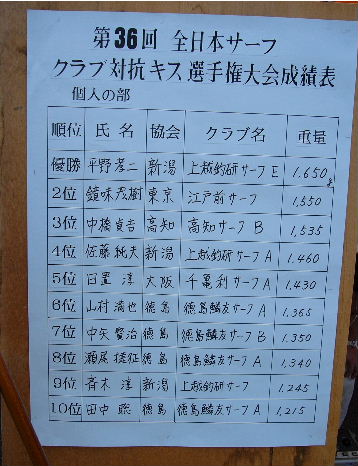 第36回 全日本サーフ
クラブ対抗キス選手権大会成績表
個人の部
順位 氏名 協会 クラブ名 重量
優勝 平野孝二 新潟 上越釣研サーフ E 1,650g
2位 鏡味茂樹 東京 江戸前サーフ 1,550
3位 中橋貞吉 高知 高知サーフ B 1,535
4位 佐藤純夫 新潟 上越釣研サーフ A 1,460
5位 日置 淳 大阪 千亀利サーフ A 1,430
6位 山村満也 徳島 徳島鱗友サーフ A 1,365
7位 中矢賢治 徳島 徳島鱗友サーフ B 1,350
8位 瀬尾捷征 徳島 徳島鱗友サーフ A 1,340
9位 斉木 淳 新潟 上越釣研サーフ 1,245
10位 田中 聡 徳島 徳島鱗友サーフ A 1,215